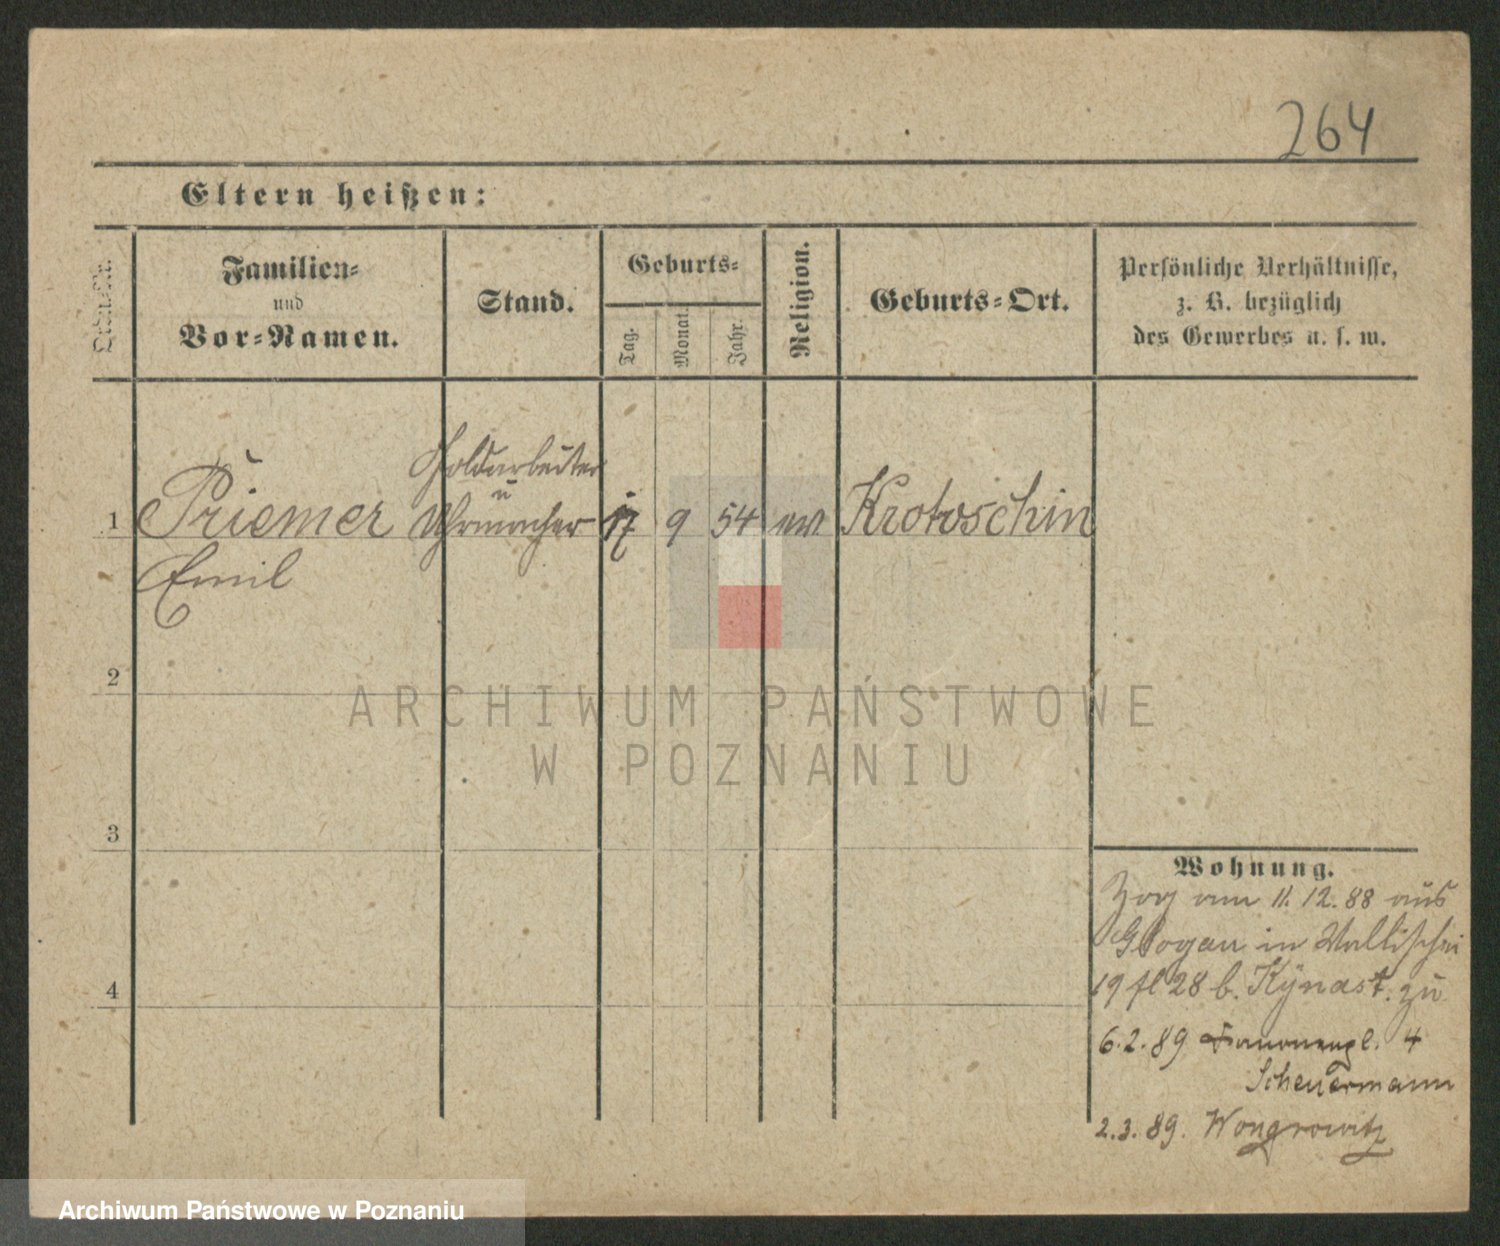 264
Eltern heißen:
Laufende Nr.
Familien-
und
Vor-Namen.
Stand.
Geburts-
Tag.
Monat.
Jahr.
Religion.
Geburts-Ort.
Persönliche Verhältnisse,
z. B. bezüglich
des Gewerbes u. s. w.
Goldarbeiter
u
1 Priemer Uhrmacher 17 9 54 ev. Krotoschin
Emil
2
3
4
Wohnung.
Zog am 11. 12. 88 aus
Glogau in Wallischei
19 fl 28 b. Kynast. zu
6.2.89 4
Scheuermann
2.3.89. Wongrowitz
ARCHIWUM PAŃSTWOWE
W POZNANIU
Archiwum Państwowe w Poznaniu